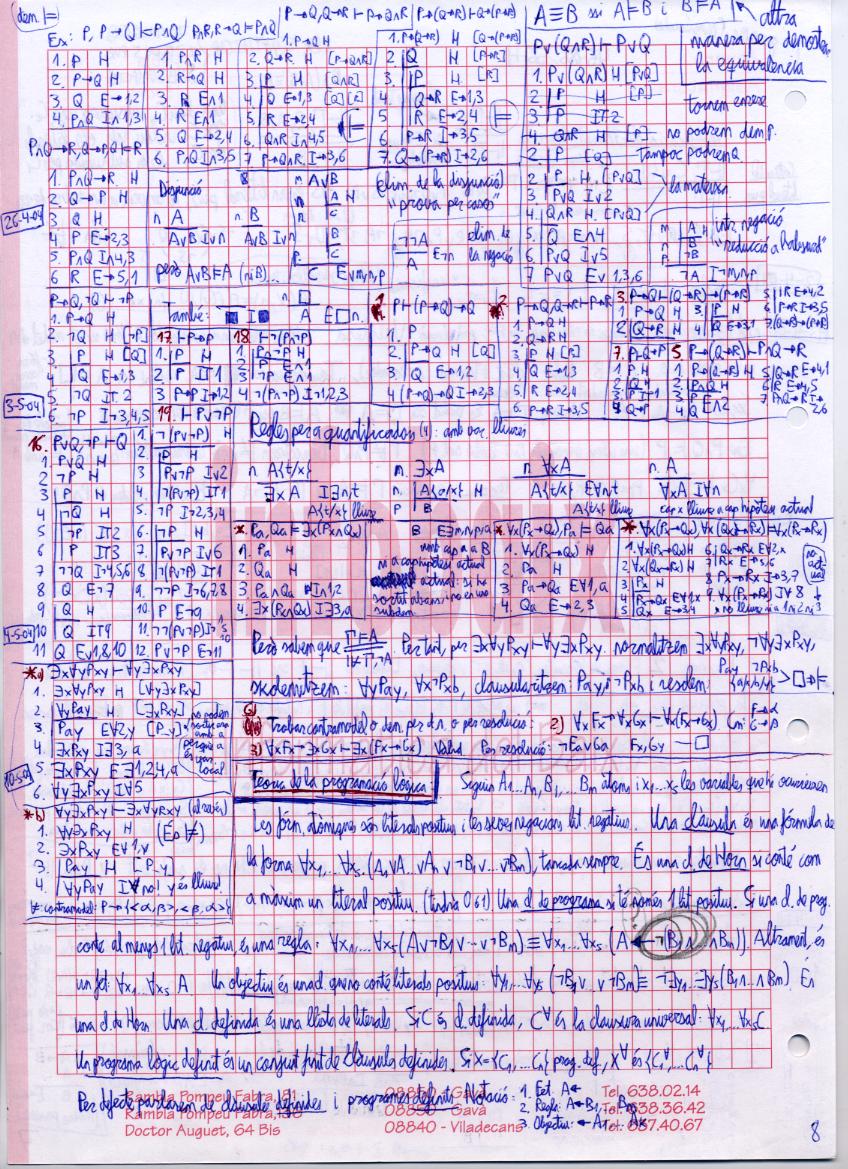 dem. ⊨
Ex: P, P→Q ⊨ P∧Q
1. P H
2. P→Q H
3. Q E→1,2
4. P∧Q I∧1,3
P∧R, R→Q ⊨ P∧Q
1. P∧R H
2. R→Q H
3. R E∧1
4. P E∧1
5. Q E→2,4
6. P∧Q I∧3,5
P→Q, Q→R ⊢ P→Q∧R
1. P→Q H
2. Q→R H [P→Q∧R]
3. P H [Q∧R]
4. Q E→1,3 [Q] [R]
5. R E→2,4
6. Q∧R I∧4,5
7 P→Q∧R I→3,6
P→(Q→R) ⊢ Q→(P→R)
1. P→(Q→R) H [Q→(P→R)]
2 Q H [P→R]
3 P H [R]
4 Q→R E→1,3
5 R E→2,4
6. P→R I→3,5
7. Q→(P→R) I→2,6
A≡B ssi A⊨B i B⊨A
altra
manera per demostrar
la equivalència
P∨(Q∧R) ⊢ P∨Q
1. P∨(Q∧R) H [P∨Q]
2 P H [P]
3 P IT2
4. Q∧R H [P] no podrem dem p.
2 P [Q] Tampoc podrem Q
tornem enrere
2 P H [P∨Q]
3 P∨Q I∨2
4. Q∧R H [P∨Q]
5 Q E∧4
6 P∨Q I∨5
7 P∨Q E∨ 1,3,6
la mateixa
P∧Q→R, Q→P, Q ⊨ R
26-4-04
1. P∧Q→R H
2 Q→P H
3 Q H
4 P E→2,3
5. P∧Q I∧4,3
6 R E→5,1
Disjunció
n A
A∨B I∨n
n B
A∨B I∨n
però A∨B⊭A (ni B)...
m A∨B
n A H
C
B
C
C E∨m,n,p
elim. de la disjunció
"prova per casos"
¬¬A
A E¬n
elim. de
la negació
intr. negació
"reducció a l'absurd"
¬A I¬m,n,p
P→Q, ¬Q ⊢ ¬P
1. P→Q H
2. ¬Q H [¬P]
3. P H [Q]
4 Q E→1,3
5 ¬Q IT 2
6. ¬P I¬3,4,5
3-5-04
També:
17. ⊢P→P
1. P H
2 P IT1
3 P→P I→1,2
18 ⊢¬(P∧¬P)
1. P∧¬P H
2 P E∧1
3 ¬P E∧1
4 ¬(P∧¬P) I¬1,2,3
1. P ⊢ (P→Q)→Q
1. P
2. P→Q H [Q]
3 Q E→1,2
4 (P→Q)→Q I→2,3
2. P→Q, Q→R ⊢ P→R
1. P→Q H
2. Q→R H
3 P H [R]
4 Q E→1,3
5. R E→2,4
6. P→R I→3,5
3. P→Q ⊢ (Q→R)→(P→R)
1 P→Q H
2 Q→R H
3 P H
4 Q E→3,1
5 R E→4,2
6 P→R I→3,5
7 (Q→R)→(P→R)
7. P ⊢ Q→P
1 P H
2 Q H
3 P IT1
4 Q→P
5. P→(Q→R) ⊢ P∧Q→R
1 P→(Q→R) H
2 P∧Q H
3 P E∧2
4 Q E∧2
5 Q→R E→4,1
6 R E→4,5
7 P∧Q→R I→2,6
16. P∨Q, ¬P ⊢ Q
1 P∨Q H
2 ¬P H
3 P H
4 ¬Q H
5 ¬P IT2
6 P IT3
7 ¬¬Q I¬4,5,6
8 Q E¬7
9 Q H
10 Q IT9
11 Q E∨1,8,10
4-5-04
19. ⊢ P∨¬P
1 ¬(P∨¬P) H
2. P H
3 P∨¬P I∨2
4. ¬(P∨¬P) IT1
5. ¬P I¬2,3,4
6. ¬P H
7. P∨¬P I∨6
8 ¬(P∨¬P) IT1
9. ¬¬P I¬6,7,8
10. P E¬9
11. ¬¬(P∨¬P) I¬
12. P∨¬P E¬11
Regles per a quantificadors (4): amb var. lliures
n. A{t/x}
∃xA I∃n,t
A{t/x} lliure
n. ∃xA
A{a/x} H
p B
B E∃m,n,p,a
n ∀xA
A{t/x} E∀n
A{t/x} lliure
n. A
∀xA I∀n
cap x lliure a cap hipòtesi actual
* Pa, Qa ⊨ ∃x(Px∧Qx)
1. Pa H
2. Qa H
3. Pa∧Qa I∧1,2
4. ∃x(Px∧Qx) I∃3,a
*. ∀x(Px→Qx), Pa ⊨ Qa
1. ∀x(Px→Qx) H
2. Pa H
3 Pa→Qa E∀1,a
4. Qa E→2,3
*. ∀x(Px→Qx), ∀x(Qx→Rx) ⊨ ∀x(Px→Rx)
1. ∀x(Px→Qx) H
2 ∀x(Qx→Rx) H
3 Px H
4 Px→Qx E∀1,x
5 Qx E→3,4
6. Qx→Rx E∀2,x
7 Rx E→5,6
8 Px→Rx I→3,7
9. ∀x(Px→Rx) I∀ 8
x no lliure ni a 1 ni 2 ni 3
Però sabem que
Per tant, per ∃x∀yPxy ⊢ ∀y∃xPxy. normalitzem ∃x∀yPxy, ¬∀y∃xPxy,
skolemitzem: ∀yPay, ∀x¬Pxb, clausularitzem: Pay, ¬Pxb i resolem: Pay ¬Pxb {a/x, b/y} > □→⊨
*a) ∃x∀yPxy ⊢ ∀y∃xPxy
1. ∃x∀yPxy H [∀y∃xPxy]
2. ∀yPay H [∃xPxy]
3. Pay E∀2,y [P_y]
4. ∃xPxy I∃3,a
5. ∃xPxy E∃1,2,4,a
6. ∀y∃xPxy I∀5
10-5-04
*b) ∀y∃xPxy ⊢ ∃x∀yPxy (al revés)
1. ∀y∃xPxy H (És ⊭)
2. ∃xPxy E∀1,y
3. Pay H [P_y]
4. ∀yPay I∀ no! y és lliure
⊭ contramodel: P→{<α,β>,<β,α>}
Trobar contramodel o dem. per d.n. o per resolució: 2) ∀xFx→∀xGx ⊢ ∀x(Fx→Gx)
3) ∀xFx→∃xGx ⊢ ∃x(Fx→Gx) Vàlid Per resolució: ¬Fa∨Ga Fx, ¬Gy — □
Teoria de la programació lògica: Siguin A1...An, B1,... Bm àtoms i x1...xs les variables que hi ocurreixen
Les fórm. atòmiques són literals positius i les seves negacions lit. negatius. Una clàusula és una fórmula de
la forma ∀x1,...∀xs (A1∨...∨An∨¬B1∨...∨¬Bm), tancada sempre. És una cl. de Horn si conté com
a màxim un literal positiu. (tindrà 0 ó 1) Una cl. de programa si té només 1 lit. positiu. Si una cl. de prog.
conté al menys 1 lit. negatiu, és una regla: ∀x1... ∀xs (A∨¬B1∨...∨¬Bm) ≡ ∀x1...∀xs (A←(B1∧...∧Bm)). Altrament, és
un fet: ∀x1...∀xs A Un objectiu és una cl. que no conté literals positius: ∀y1...∀ys (¬B1∨...∨¬Bm) ≡ ¬∃y1...∃ys(B1∧...∧Bm). És
una cl. de Horn Una cl. definida és una llista de literals. Si C és cl. definida, C∀ és la clausura universal: ∀x1...∀xs C
Un programa lògic definit és un conjunt finit de clàusules definides. Si X={C1,...Cn} prog. def, X∀ és {C1∀,...Cn∀}
Per defecte parlarem de clàusules definides i programes definits. Notació: 1. Fet. A←
2. Regla: A←B1,...Bm
3. Objectiu: ←A1,...Ak
Rambla Pompeu Fabra, 81 08850 - Gavà Tel. 638.02.14
Rambla Pompeu Fabra, 08850 - Gavà Tel. 638.36.42
Doctor Auguet, 64 Bis 08840 - Viladecans Tel. 637.40.67
8